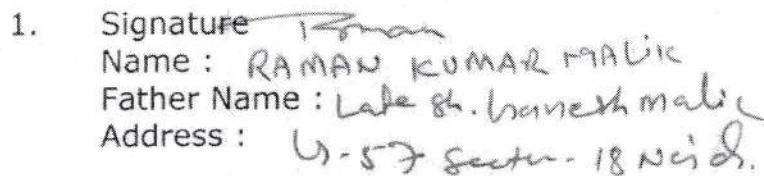 1. Signature Raman
Name : RAMAN KUMAR MALIK
Father Name : Late Sh. Ganesh Malik
Address : -57 Sector - 18 Noida.